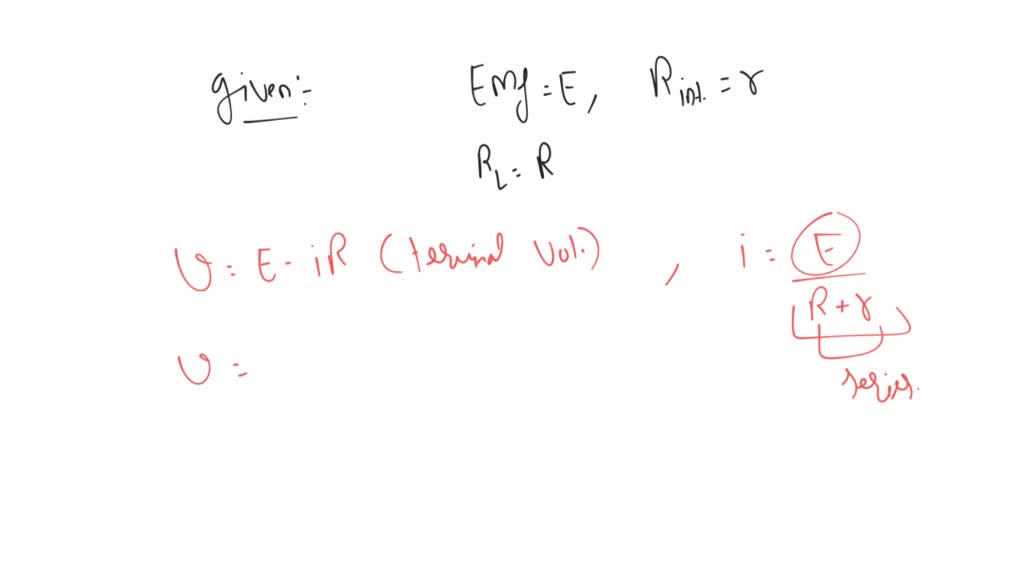 given:- Emf = E, Rint. = r
RL = R
V = E - iR (terminal Vol.) , i = E / R + r
series.
V =